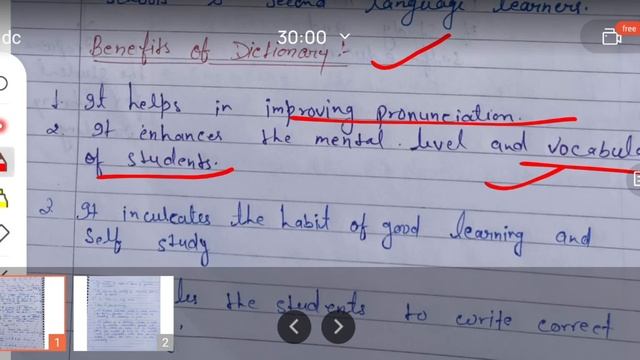 second language learners.
dc 30:00 free
Benefits of Dictionary :-
1. It helps in improving pronunciation.
2. It enhances the mental level and vocabula
of students.
3. It inculcates the habit of good learning and
self study
the students to write correct
1 2